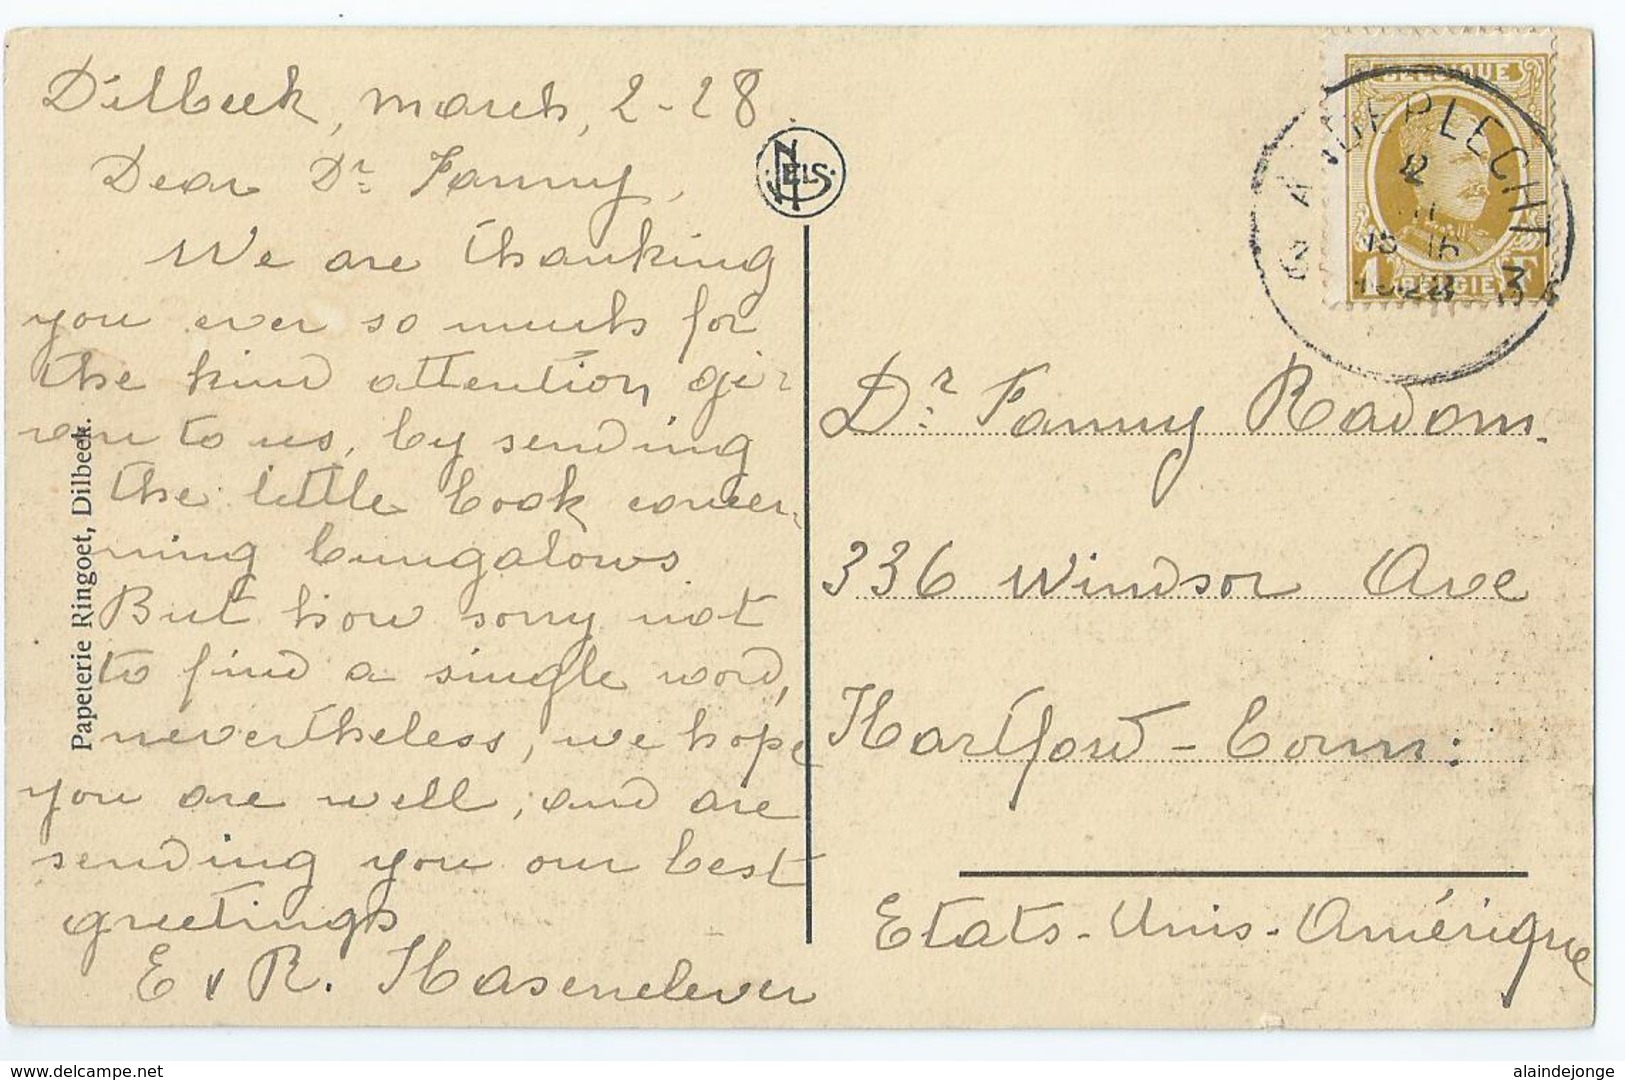 Dilbeek, march, 2-28.
Dear Dr. Fanny,
We are thanking
you ever so much for
the kind attention gi-
ven to us, by sending
the little book concer-
ning bungalows
But how sorry not
to find a single word,
nevertheless, we hope
you are well, and are
sending you our best
greetings
E & R. Hasenclever
Papeterie Ringoet, Dilbeek.
NELS
BELGIQUE
1 F
BELGIE
ANDERLECHT
2
III
15 16
1928
3
Dr. Fanny Radom.
336 Windsor Ave
Hartford - Conn:
Etats-Unis-Amérique
delcampe.net
alaindejonge